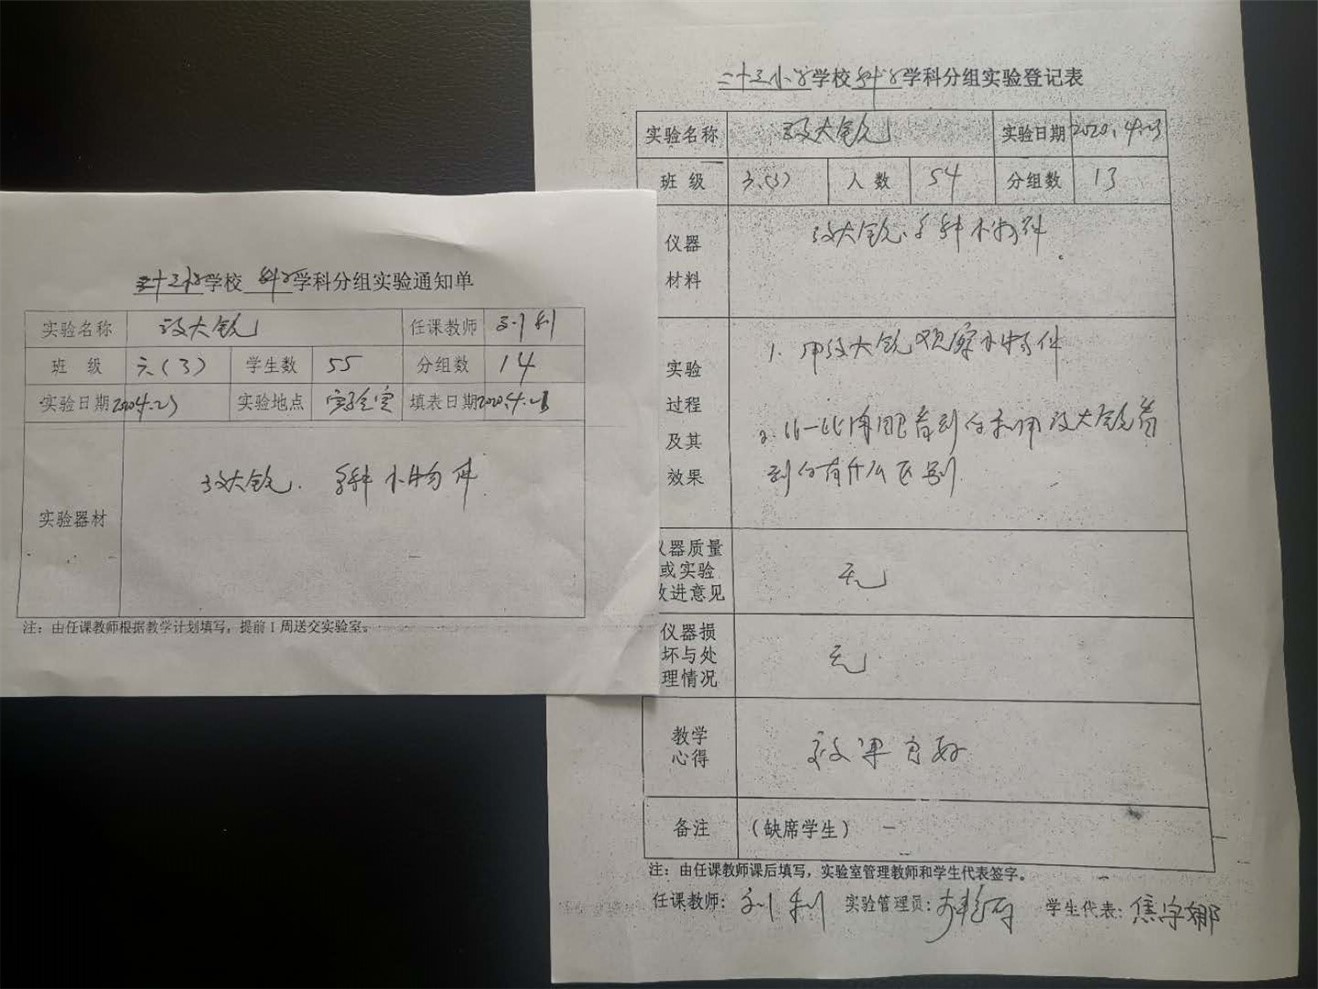 二十三小学校 科学学科分组实验通知单
实验名称 放大镜 任课教师 刘利
班 级 六(3) 学生数 55 分组数 14
实验日期 实验地点 实验室 填表日期
实验器材 放大镜. 各种小物件
注: 由任课教师根据教学计划填写, 提前1周送交实验室。
二十三小学学校科学学科分组实验登记表
实验名称 放大镜 实验日期 2020.4.23
班 级 六(3) 人 数 54 分组数 13
仪器
材料
放大镜. 各种小物件
实验
过程
及其
效果
1. 用放大镜观察小物件
2. 比一比用眼看到的和用放大镜看
到的有什么区别
仪器质量
或实验
改进意见
无
仪器损
坏与处
理情况
无
教学
心得
效果良好
备注 (缺席学生) —
注: 由任课教师课后填写, 实验室管理教师和学生代表签字。
任课教师: 刘利 实验管理员: 学生代表: 焦宇娜